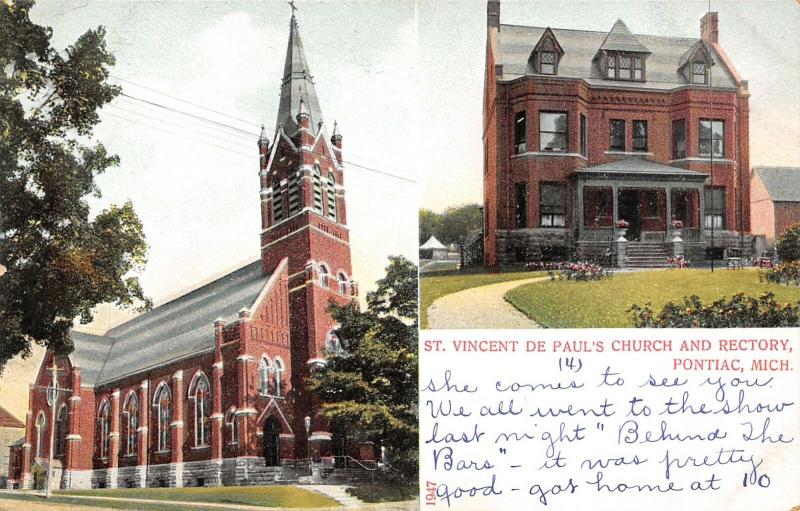 ST. VINCENT DE PAUL'S CHURCH AND RECTORY,
PONTIAC, MICH.
(4)
she comes to see you.
We all went to the show
last night "Behind The
Bars" - it was pretty
good - got home at 10
1947